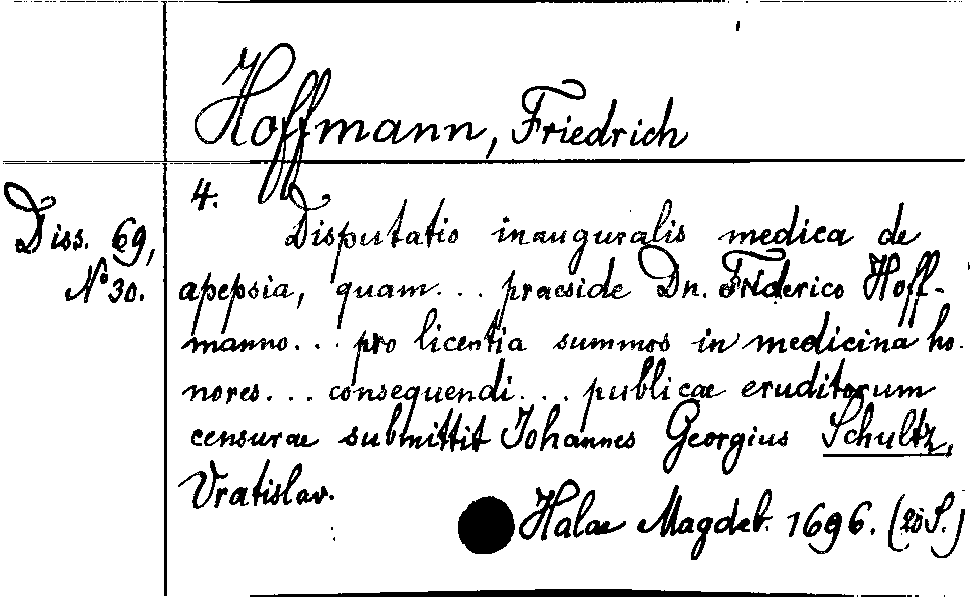 Hoffmann, Friedrich
Diss. 69,
No 30.
4.
Disputatio inauguralis medica de
apepsia, quam... praeside Dn. Friderico Hoff-
manno... pro licentia summos in medicina ho-
nores... consequendi... publicae eruditorum
censurae submittit Johannes Georgius Schultz,
Vratislav.
Halae Magdeb. 1696. (28 S.)